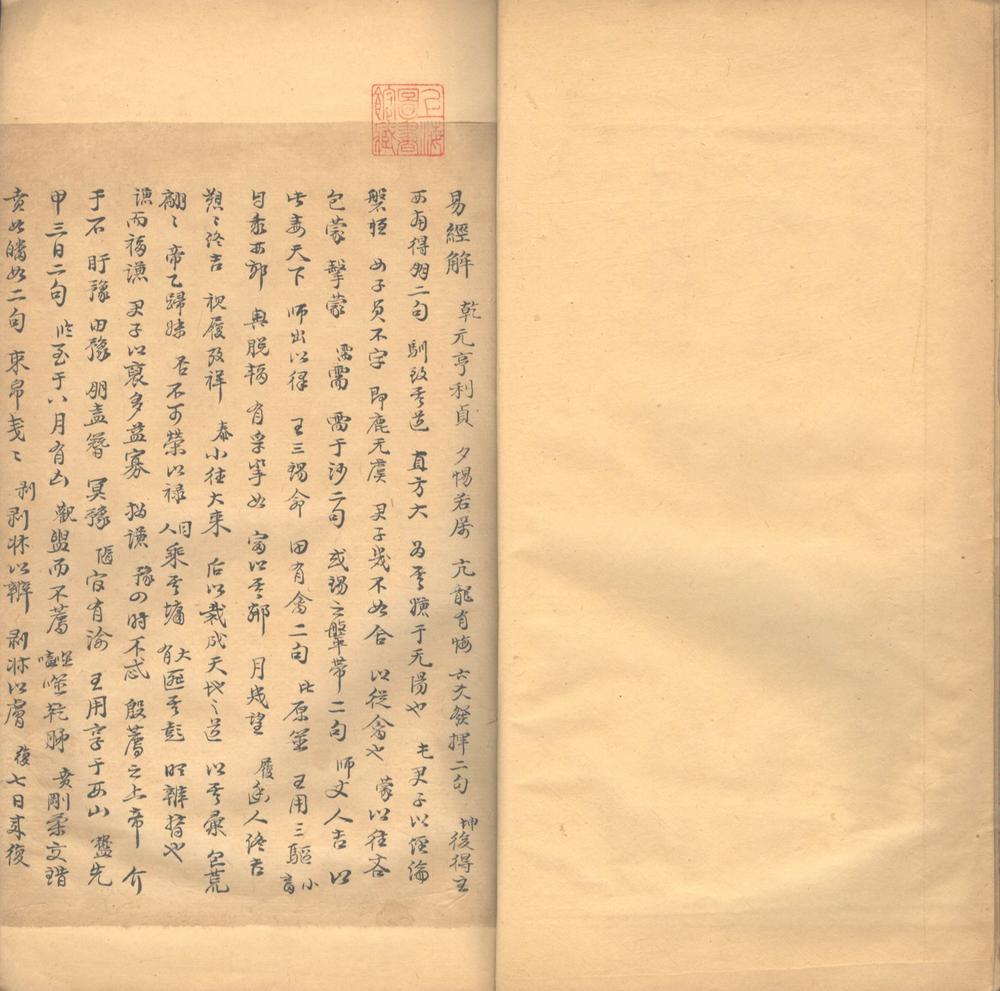 上海圖書館藏
易經解 乾元亨利貞 夕惕若厲 亢龍有悔 六爻發揮二句 坤後得主
西南得朋二句 馴致其道 直方大 為其嫌于无陽也 屯君子以經綸
磐桓 女子貞不字 即鹿无虞 君子幾不如舍 以從禽也 蒙以往吝
包蒙 擊蒙 需需 需于沙二句 或錫之鞶帶二句 師丈人吉 以
此毒天下 師出以律 王三錫命 田有禽二句 比原筮 王用三驅 小畜
自我西郊 輿脫輻 有孚攣如 富以其鄰 月幾望 履幽人終吉
愬〻終吉 視履考祥 泰小往大來 后以裁成天地之道 以其彙 包荒
翩〻 帝乙歸妹 否不可榮以祿 同人乘其墉 大有匪其彭 明辨晳也
謙而福謙 君子以裒多益寡 撝謙 豫四時不忒 殷薦之上帝 介
于石 盱豫 由豫 朋盍簪 冥豫 隨官有渝 王用亨于西山 蠱先
甲三日二句 臨至于八月有凶 觀盥而不薦 噬嗑噬乾胏 賁剛柔交錯
賁如皤如二句 束帛戔〻 剝剝牀以辨 剝牀以膚 復七日來復